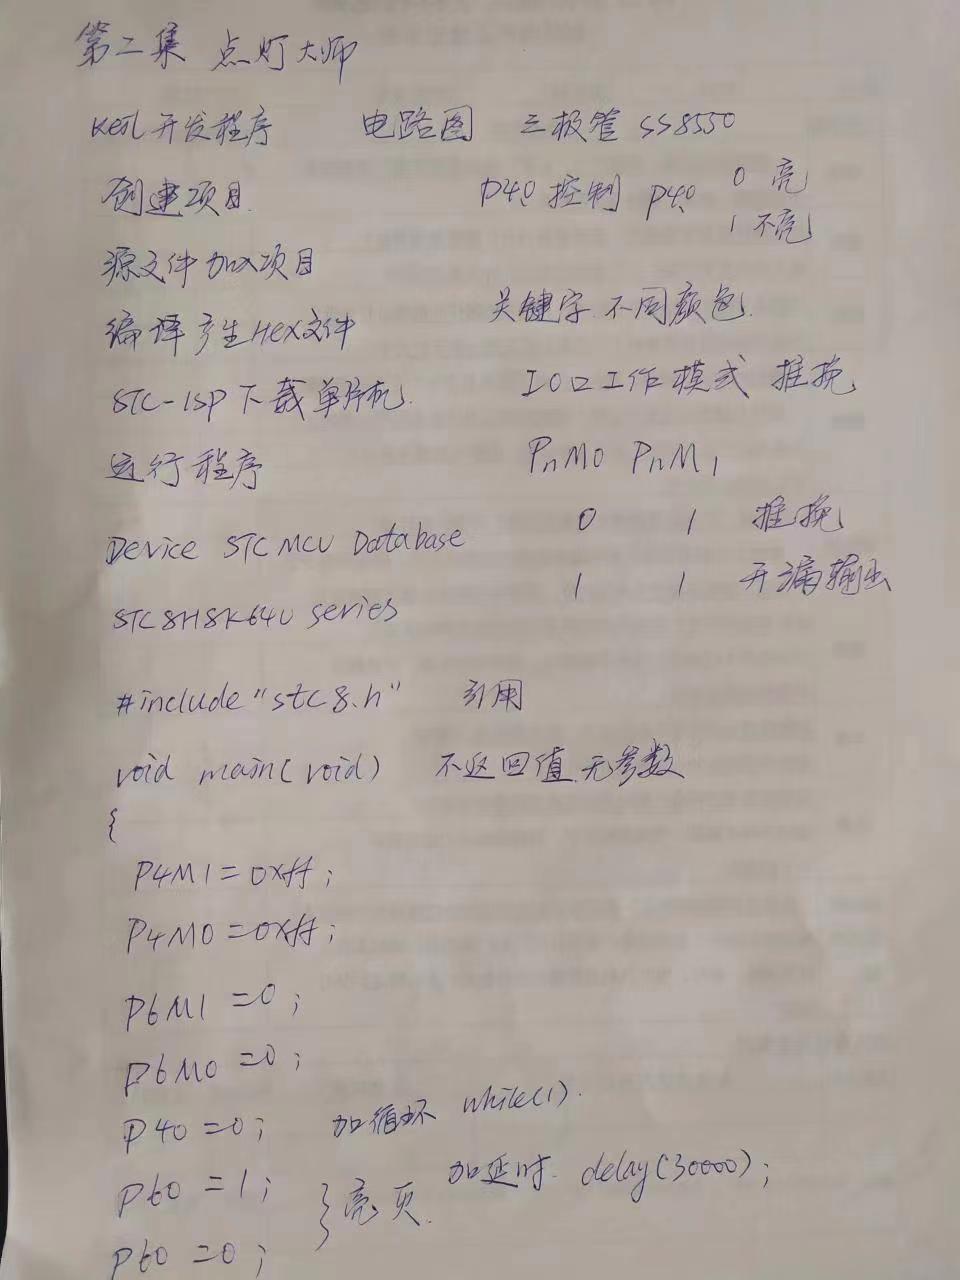 第二集 点灯大师
keil 开发程序 电路图 三极管 SS8550
创建项目. P4.0 控制 P4.0 0 亮
1 不亮
源文件加入项目
关键字.不同颜色.
编译产生Hex文件
IO口工作模式 推挽
STC-ISP下载单片机.
运行程序 PnM0 PnM1
0 1 推挽
Device STC MCU Database
1 1 开漏输出
STC8H8K64U series
#include"stc8.h" 引用
void main(void) 不返回值.无参数
{
P4M1=0xff;
P4M0=0xff;
P6M1=0;
P6M0=0;
P40=0; 加循环 while(1).
P60=1; }亮灭. 加延时. delay(30000);
P60=0;